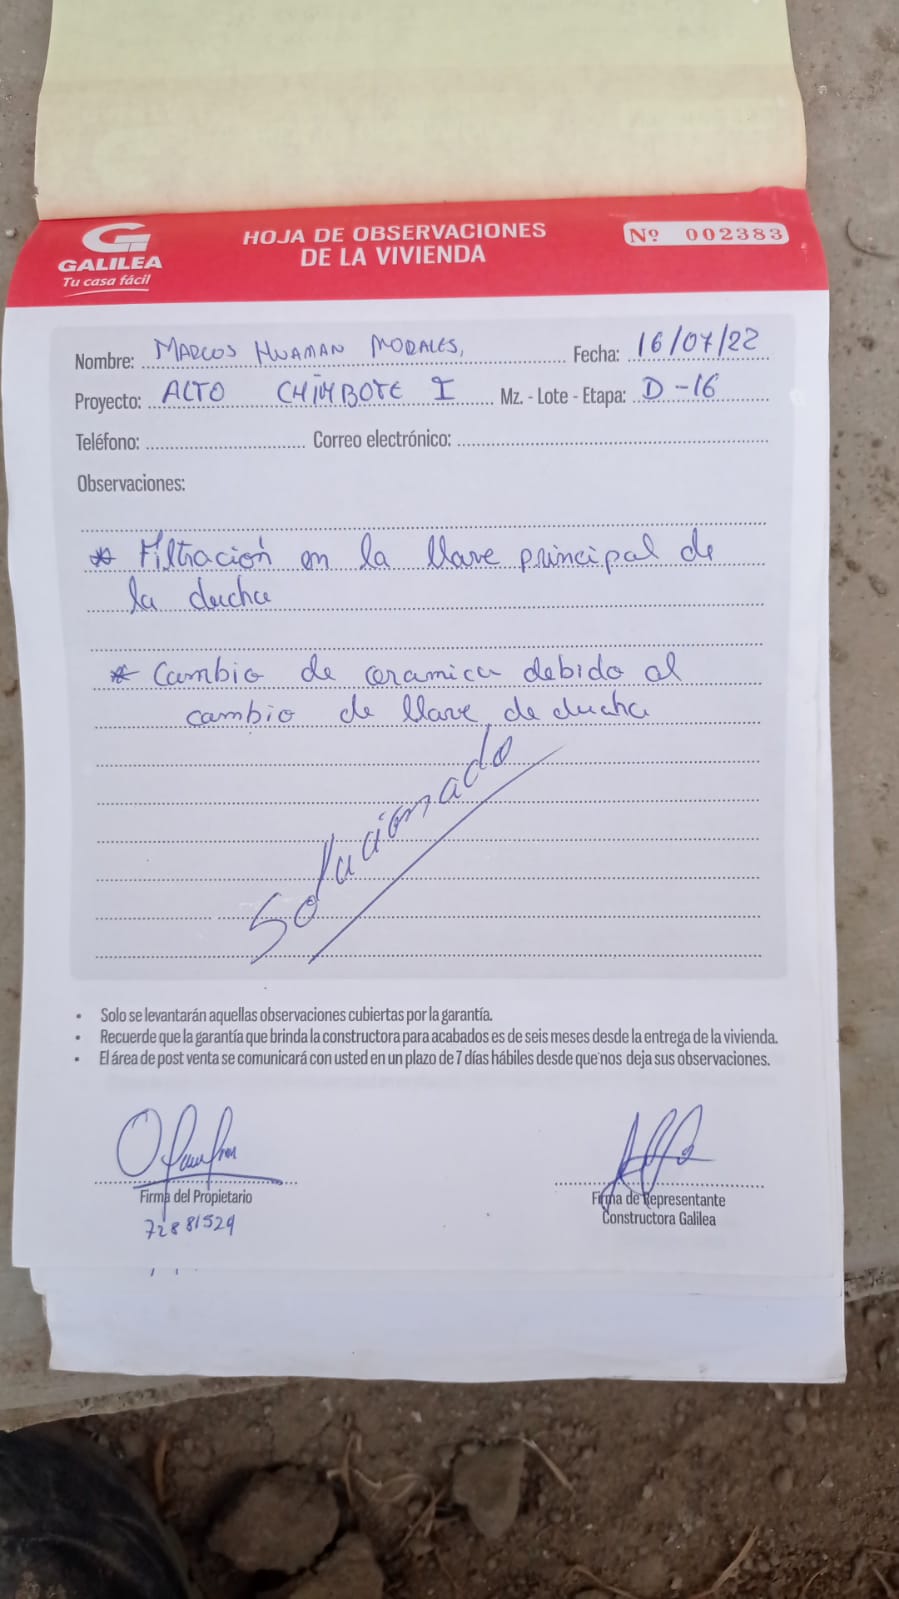 GALILEA
Tu casa fácil
HOJA DE OBSERVACIONES
DE LA VIVIENDA
Nº 002383
Nombre: MARCOS HUAMAN MORALES, Fecha: 16/07/22
Proyecto: ALTO CHIMBOTE I Mz. - Lote - Etapa: D-16
Teléfono: Correo electrónico:
Observaciones:
* Filtración en la llave principal de
la ducha
* Cambio de ceramica debido al
cambio de llave de ducha
Solucionado
• Solo se levantarán aquellas observaciones cubiertas por la garantía.
• Recuerde que la garantía que brinda la constructora para acabados es de seis meses desde la entrega de la vivienda.
• El área de post venta se comunicará con usted en un plazo de 7 días hábiles desde que nos deja sus observaciones.
Firma del Propietario
72881529
Firma de Representante
Constructora Galilea